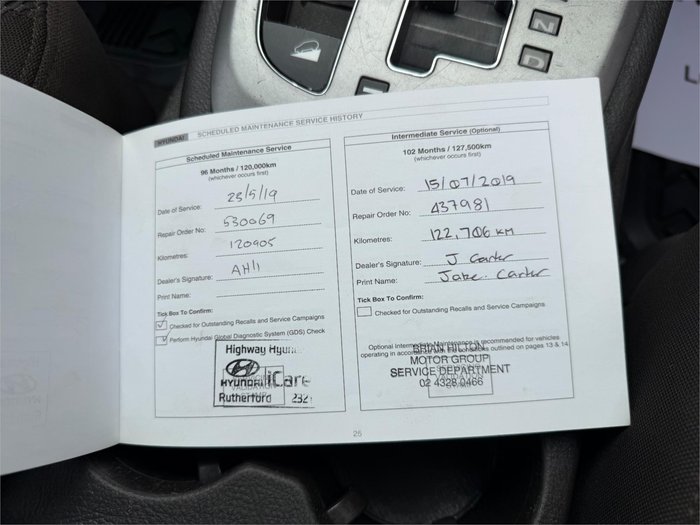 N
D
HYUNDAI SCHEDULED MAINTENANCE SERVICE HISTORY
Scheduled Maintenance Service
96 Months / 120,000km
(whichever occurs first)
Date of Service: 23/5/19
Repair Order No: 530069
Kilometres: 120905
Dealer's Signature:
Print Name:
Tick Box To Confirm:
Checked for Outstanding Recalls and Service Campaigns
Perform Hyundai Global Diagnostic System (GDS) Check
Highway Hyu
HYUNDAI iCare
Rutherford 232
Intermediate Service (Optional)
102 Months / 127,500km
(whichever occurs first)
Date of Service: 15/07/2019
Repair Order No: 437981
Kilometres: 122,706 KM
Dealer's Signature: J Carter
Print Name: Jake. Carter
Tick Box To Confirm:
Checked for Outstanding Recalls and Service Campaigns
Optional Intermediate Maintenance is recommended for vehicles
operating in accordance with the conditions outlined on pages 13 & 14
BRIAN HILTON
MOTOR GROUP
SERVICE DEPARTMENT
02 4328 0466
25